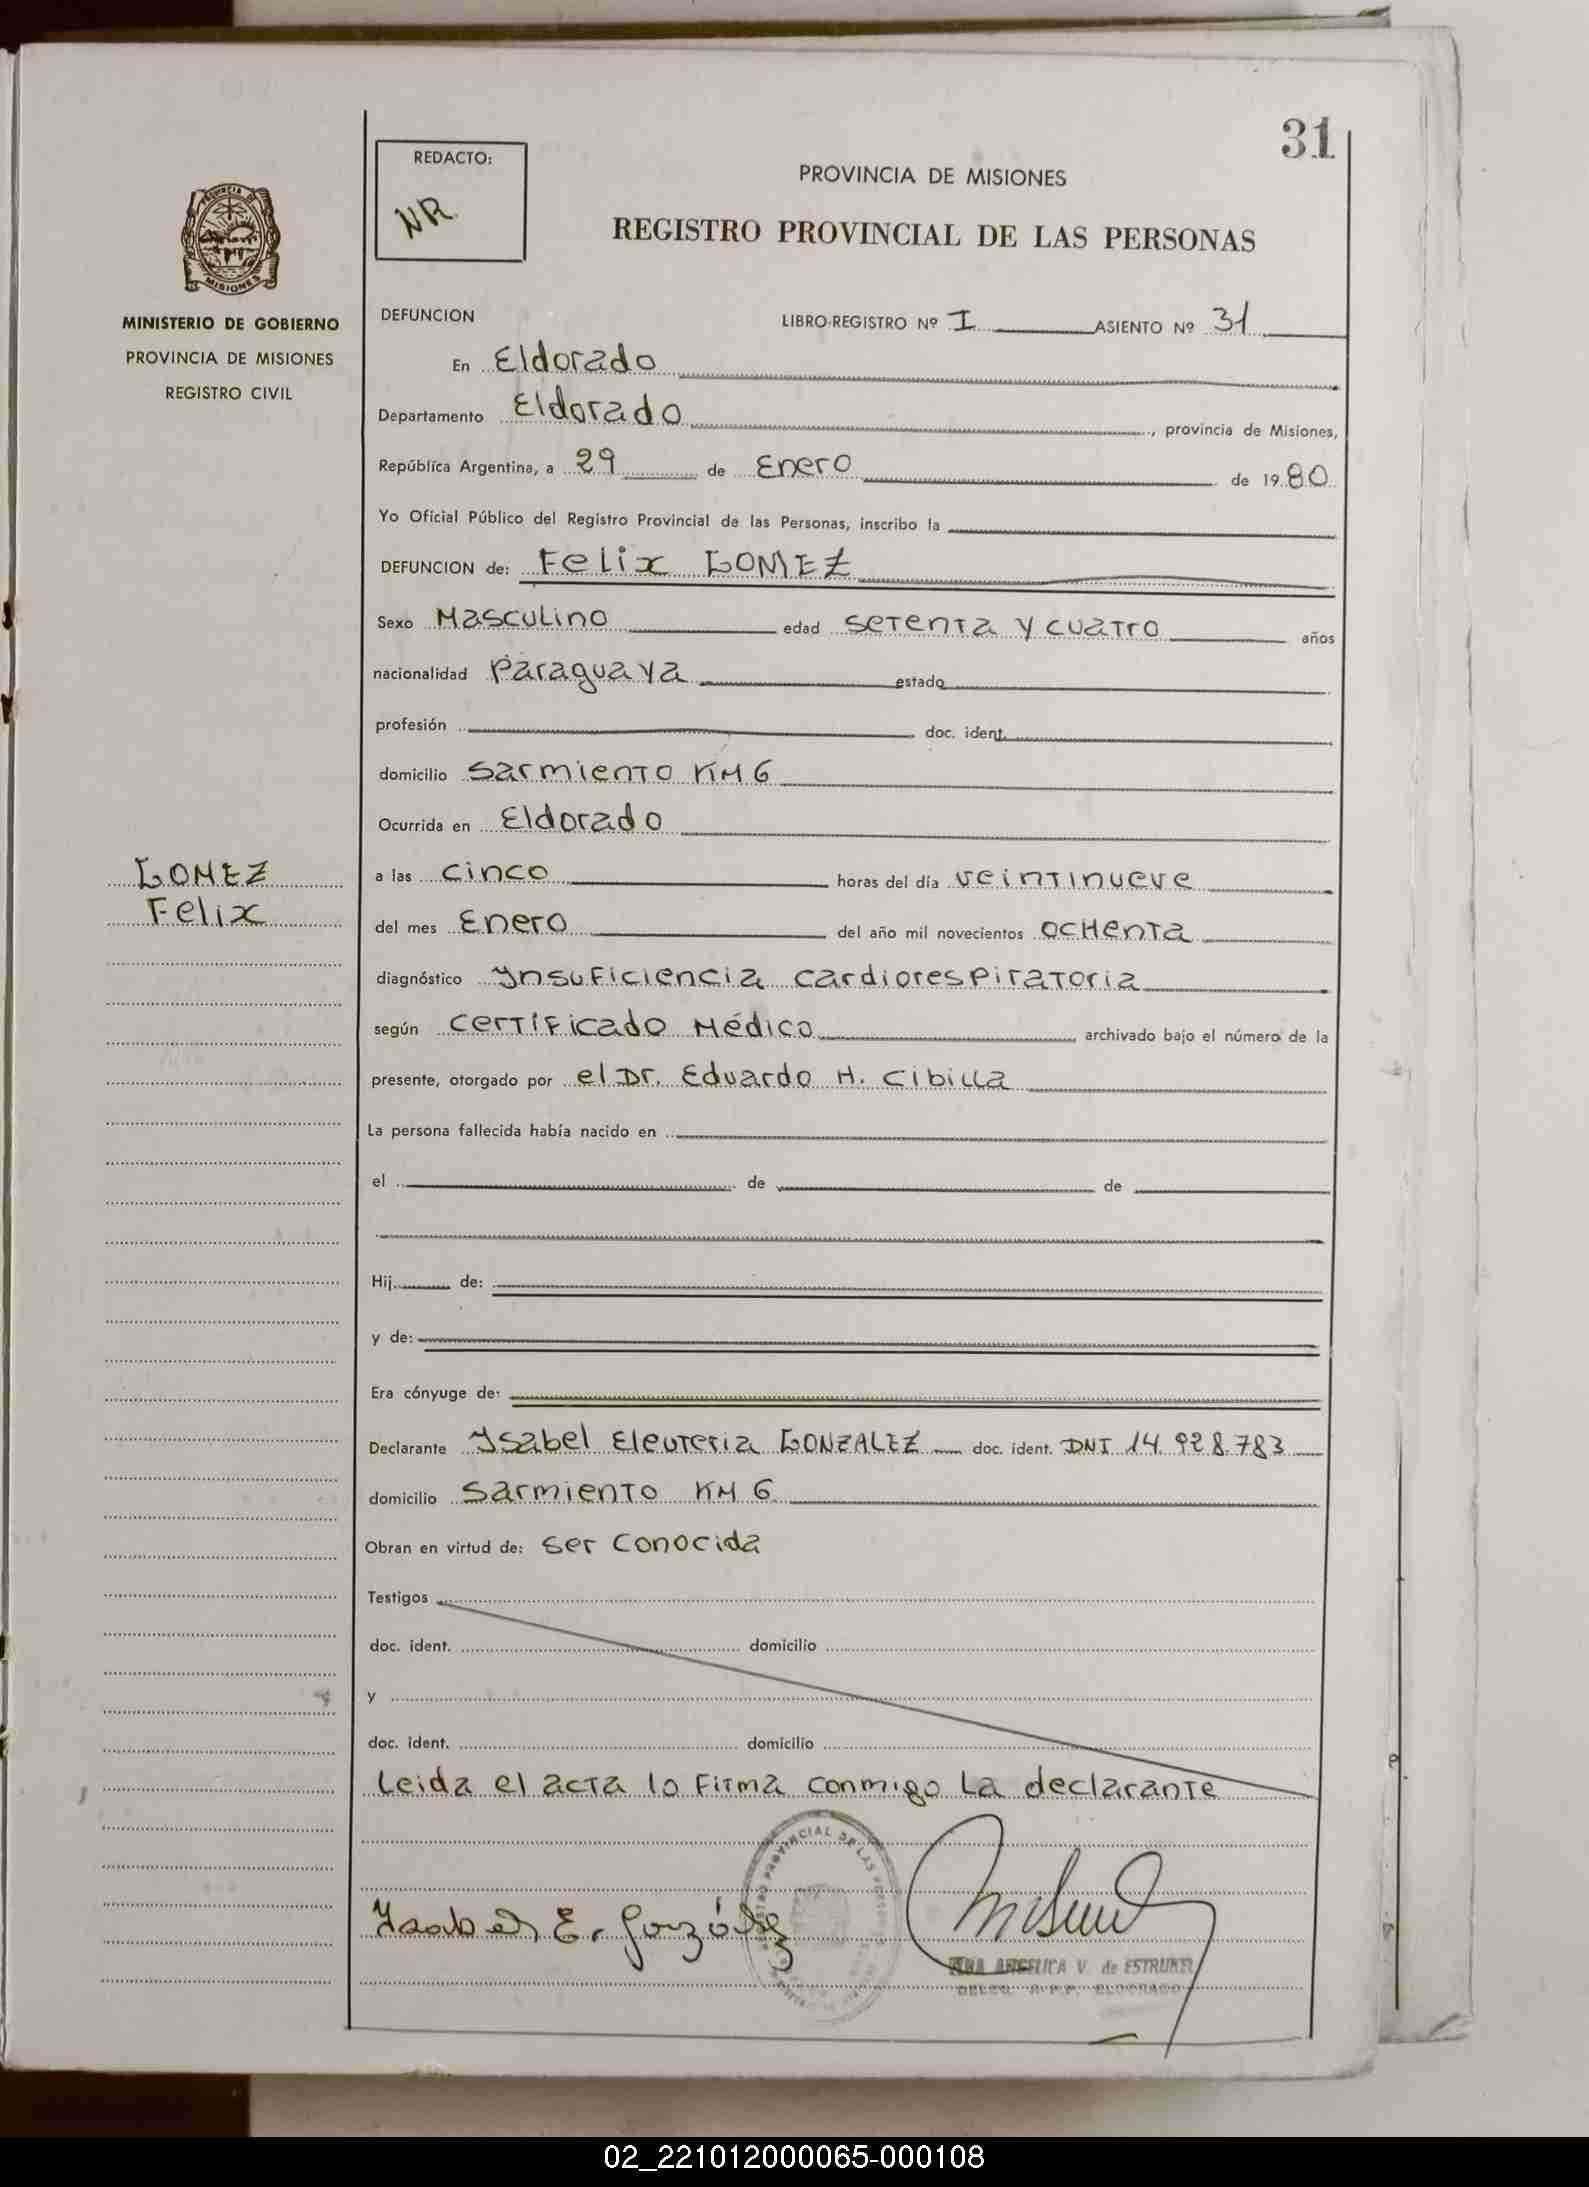 31
REDACTO:
NR.
PROVINCIA DE MISIONES
REGISTRO PROVINCIAL DE LAS PERSONAS
PROVINCIA DE
MISIONES
MINISTERIO DE GOBIERNO
PROVINCIA DE MISIONES
REGISTRO CIVIL
DEFUNCION LIBRO-REGISTRO Nº I ASIENTO Nº 31
En Eldorado
Departamento Eldorado, provincia de Misiones,
República Argentina, a 29 de Enero de 1980
Yo Oficial Público del Registro Provincial de las Personas, inscribo la
DEFUNCION de: Felix GOMEZ
Sexo Masculino edad setenta y cuatro años
nacionalidad Paraguaya estado
profesión doc. ident.
domicilio Sarmiento KM 6
Ocurrida en Eldorado
GOMEZ
Felix
a las cinco horas del día veintinueve
del mes Enero del año mil novecientos ochenta
diagnóstico Ynsuficiencia cardiorespiratoria
según certificado Médico archivado bajo el número de la
presente, otorgado por el Dr. Eduardo H. Cibilla
La persona fallecida había nacido en
el de de
Hij de:
y de:
Era cónyuge de:
Declarante Ysabel Eleuteria GONZALEZ doc. ident. DNI 14.928.783
domicilio Sarmiento KM 6
Obran en virtud de: ser conocida
Testigos
doc. ident. domicilio
y
doc. ident. domicilio
Leida el acta lo firma conmigo la declarante
Ysabel E. González
REGISTRO PROVINCIAL DE LAS PERSONAS
ANGELICA V. de ESTRUKEL
ELDORADO
02_221012000065-000108